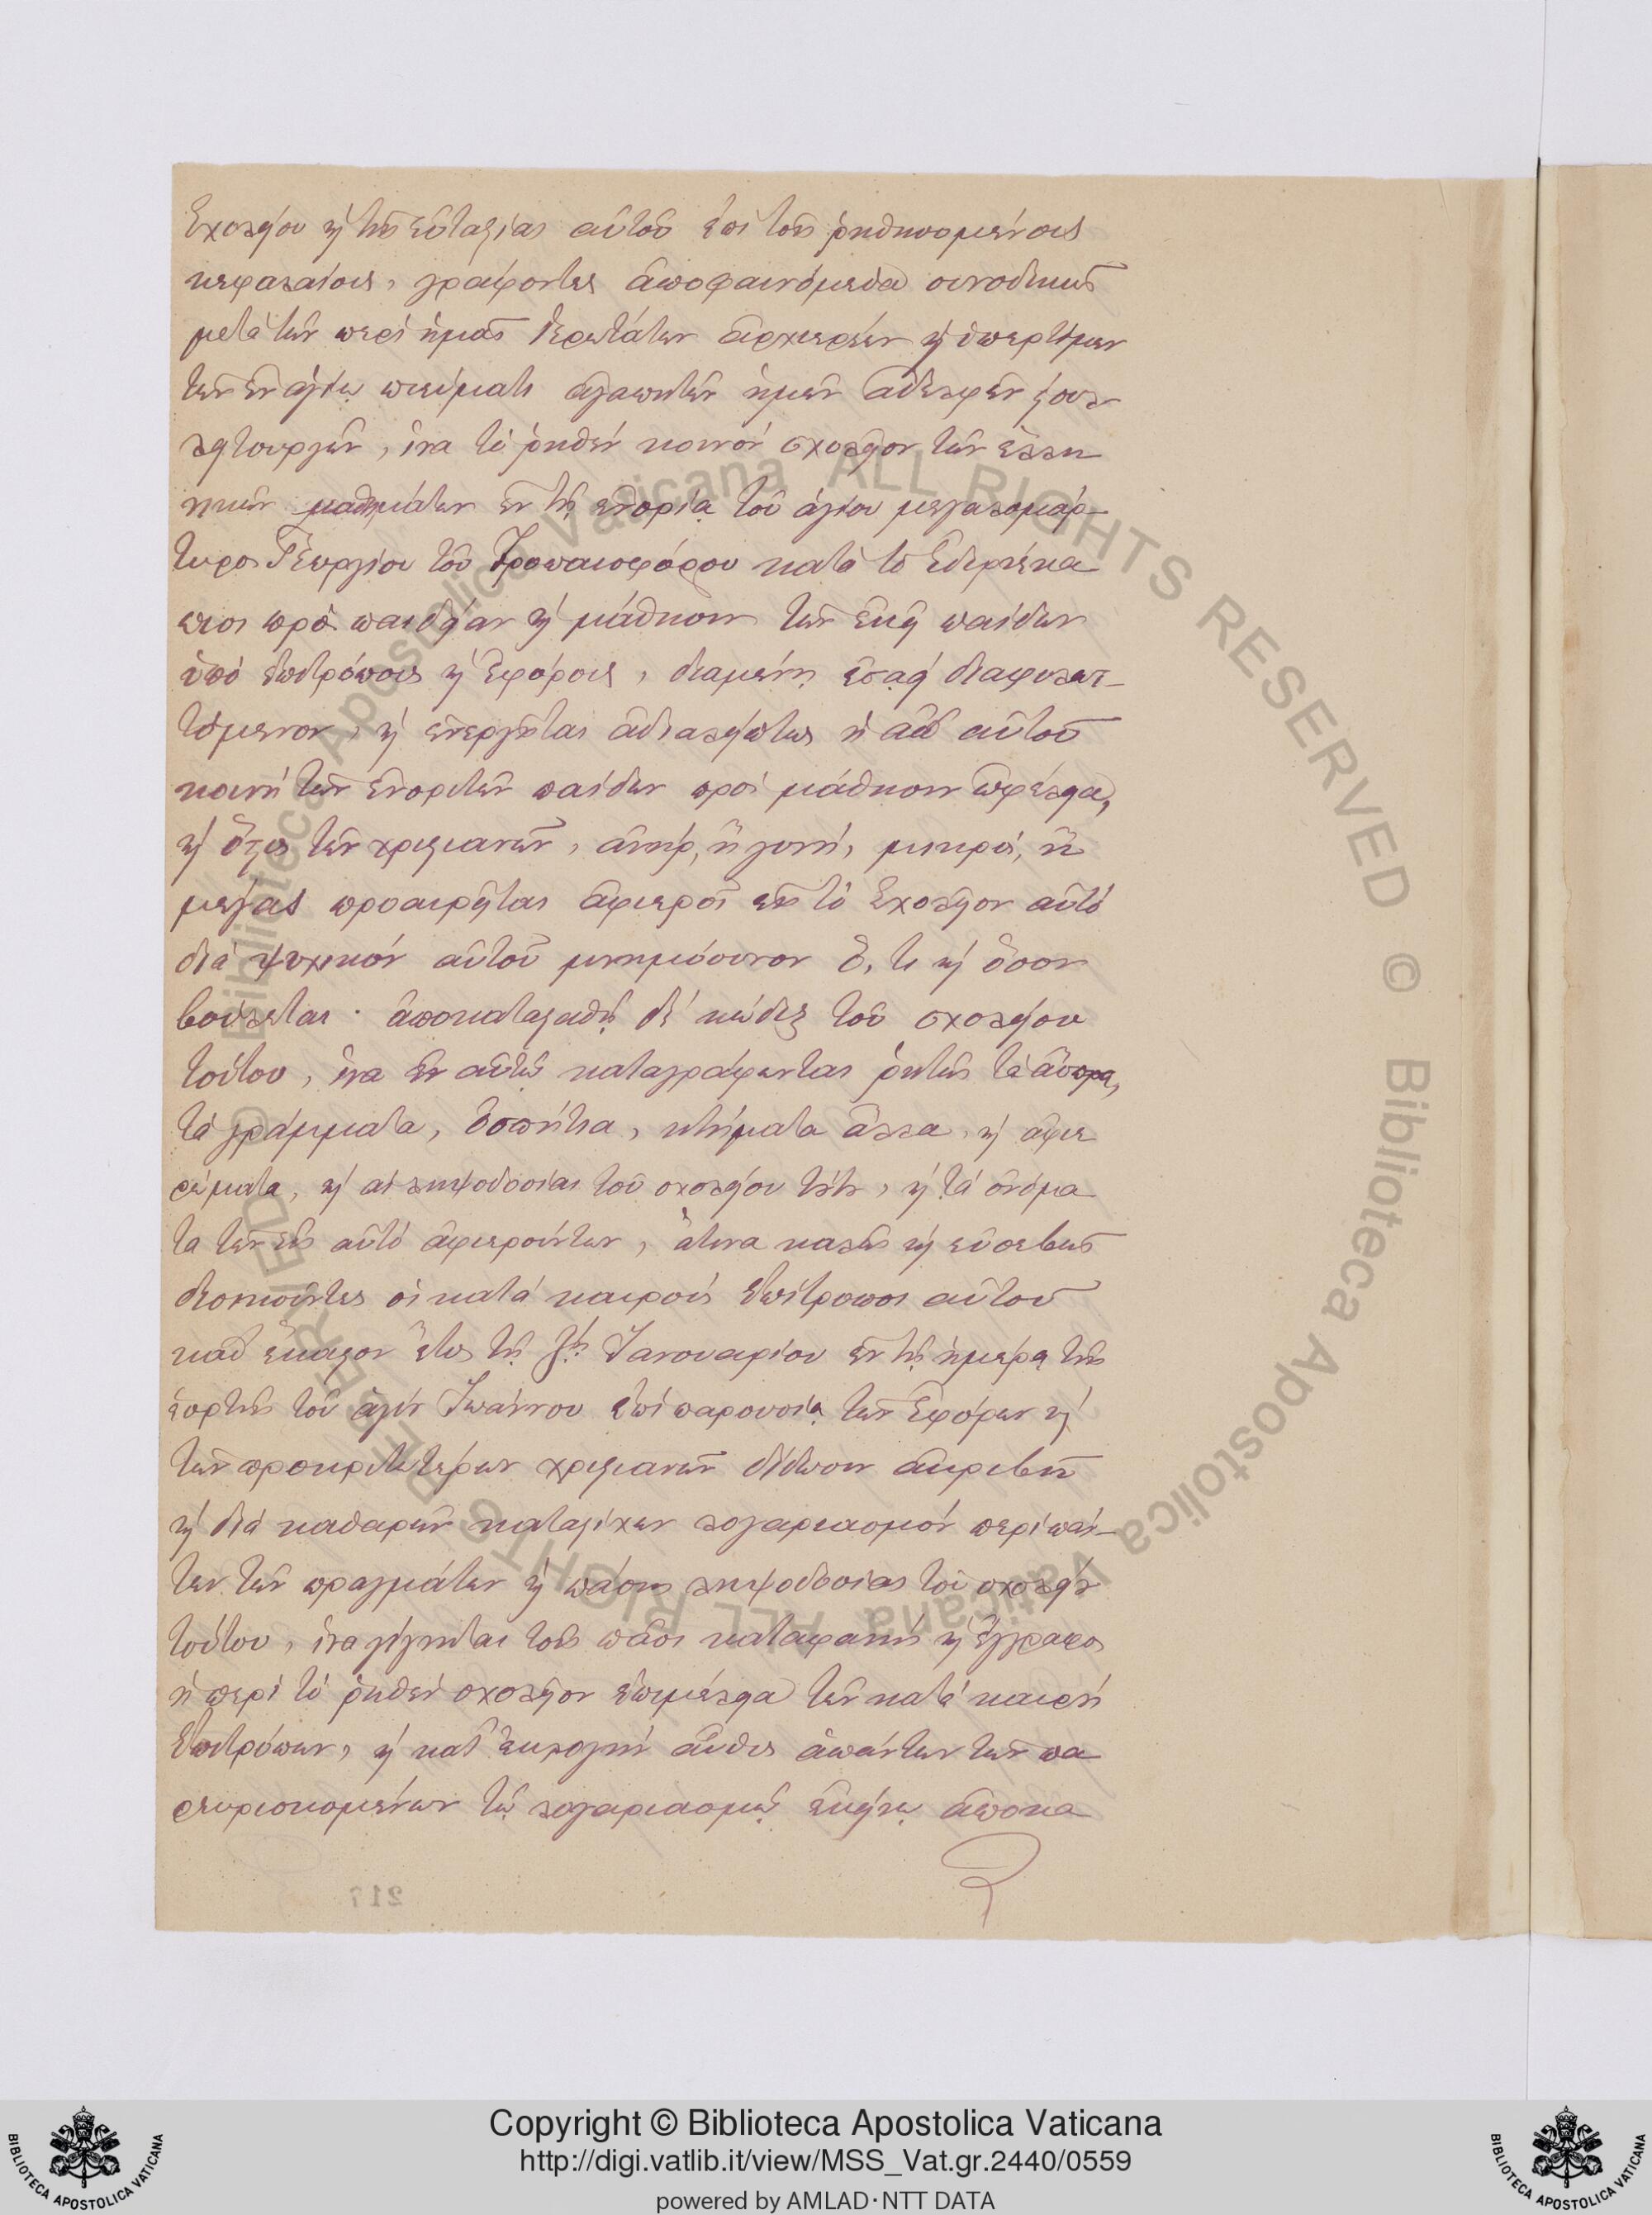 Σχολείου κ̀ τῆς εὐταξίας αὐτοῦ ἐπὶ τοῖς ῥηθησομένοις
κεφαλαίοις, γράφοντες ἀποφαινόμεθα συνοδικῶς
μετὰ τῶν περὶ ἡμᾶς ἱερωτάτων ἀρχιερέων κ̀ ὑπερτίμων
τῶν ἐν ἁγίῳ πνεύματι ἀγαπητῶν ἡμῶν ἀδελφῶν κ̀ συλ
λειτουργῶν, ἵνα τὸ ῥηθὲν κοινὸν σχολεῖον τῶν ἑλλη
νικῶν μαθημάτων ἐν τῇ ἐνορίᾳ τοῦ ἁγίου μεγαλομάρ-
τυρος Γεωργίου τοῦ Τροπαιοφόρου κατὰ τὸ Ἐδιρνέκα
πισι πρὸς παιδείαν κ̀ μάθησιν τῶν ἐκεῖ παίδων
ὑπὸ ἐπιτρόποις κ̀ Ἐφόροις, διαμένῃ ἐσαεὶ διαφυλατ-
τόμενον, κ̀ ἐνεργῆται ἀδιαλείπτως ἡ ἀπ' αὐτοῦ
κοινὴ τῶν ἐνοριτῶν παίδων πρὸς μάθησιν ὠφέλεια,
κ̀ ὅστις τῶν χριστιανῶν, ἀνὴρ, ἢ γυνὴ, μικρὸς, ἢ
μέγας προαιρεῖται ἀφιεροῖ εἰς τὸ Σχολεῖον αὐτὸ
διὰ ψυχικὸν αὐτοῦ μνημόσυνον ὅ,τι κ̀ ὅσον
βούλεται· ἀποκατασταθῇ δὲ κώδιξ τοῦ σχολείου
τούτου, ἵνα ἐν αὐτῷ καταγράφωνται ῥητῶς τὰ ἄσπρα,
τὰ γράμματα, ὁσπήτια, κτήματα ἄλλα, κ̀ ἀφιε
ρώματα, κ̀ αἱ ληψοδοσίαι τοῦ σχολείου τούτου, κ̀ τὰ ὀνόμα
τα τῶν εἰς αὐτὸ ἀφιερούντων, ἅτινα καλῶς κ̀ εὐσεβῶς
διοικοῦντες οἱ κατὰ καιροὺς ἐπίτροποι αὐτοῦ
καθ' ἕκαστον ἔτος τῇ ζῃ Ἰανουαρίου ἐν τῇ ἡμέρᾳ τῆς
ἑορτῆς τοῦ ἁγίου Ἰωάννου ἐπὶ παρουσίᾳ τῶν Ἐφόρων κ̀
τῶν προκριτωτέρων χριστιανῶν δίδωσιν ἀκριβῆ
κ̀ διὰ καθαρῶν καταστίχων λογαριασμὸν περὶ πάν-
των τῶν πραγμάτων κ̀ πάσης ληψοδοσίας τοῦ σχολείου
τούτου, ἵνα γίγνηται τοῖς πᾶσι καταφανὴς κ̀ ἔγγραφος
ἡ περὶ τὸ ῥηθὲν σχολεῖον ἐπιμέλεια τῶν κατὰ καιρὸν
ἐπιτρόπων, κ̀ κατ' ἐκλογὴν αὖθις ἁπάντων τῶν πα
ρευρισκομένων τῷ λογαριασμῷ ἐκείνῳ ἀποκα
217
Copyright © Biblioteca Apostolica Vaticana
http://digi.vatlib.it/view/MSS_Vat.gr.2440/0559
powered by AMLAD·NTT DATA
BIBLIOTECA APOSTOLICA VATICANA
BIBLIOTECA APOSTOLICA VATICANA
© Biblioteca Apostolica Vaticana ALL RIGHTS RESERVED © Biblioteca Apostolica Vaticana ALL RIGHTS RESERVED